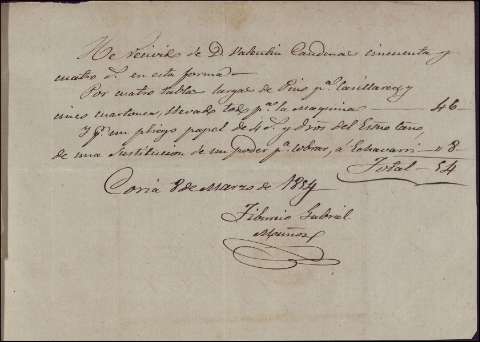 He recivido de D. Valentin Cardenas cincuenta y
cuatro r.s en esta forma
Por cuatro tablas largas de Pino p.a y
cinco llevado todo p.a la Maquina 46
Y p.r un pliego papel de 4.o y dros del Esno
de una Sustitucion de un poder p.a cobrar, á Echavarri 8
Total 54
Coria 8 de Marzo de 1854
Tiburcio Gabriel
Muñoz